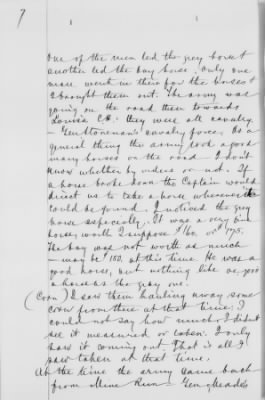 7
One of the men led the grey horse &
another led the bay horse. Only one
man went in there for the horses &
brought them out. The army was
going on the road then towards
Louisa C.H. They were all cavalry
- Gen Stoneman's cavalry force. As a
general thing the army took a good
many horses on the road. I don't
know whether by orders or not. If
a horse broke down the Captain would
direct us to take a horse wherever it
could be found. I noticed the grey
horse especially. It was a very fine
horse, worth I suppose $160. or $175.
The bay was not worth as much
- may be $100. at this time. He was a
good horse, but nothing like as good
a horse as the gray one.
(Corn) I saw them hauling away some
corn from there at that time; I
could not say how much. I didn't
see it measured or taken. I only
saw it coming out. That is all I
saw taken at that time.
At the time the army came back
from Mine Run - Gen. Meade's